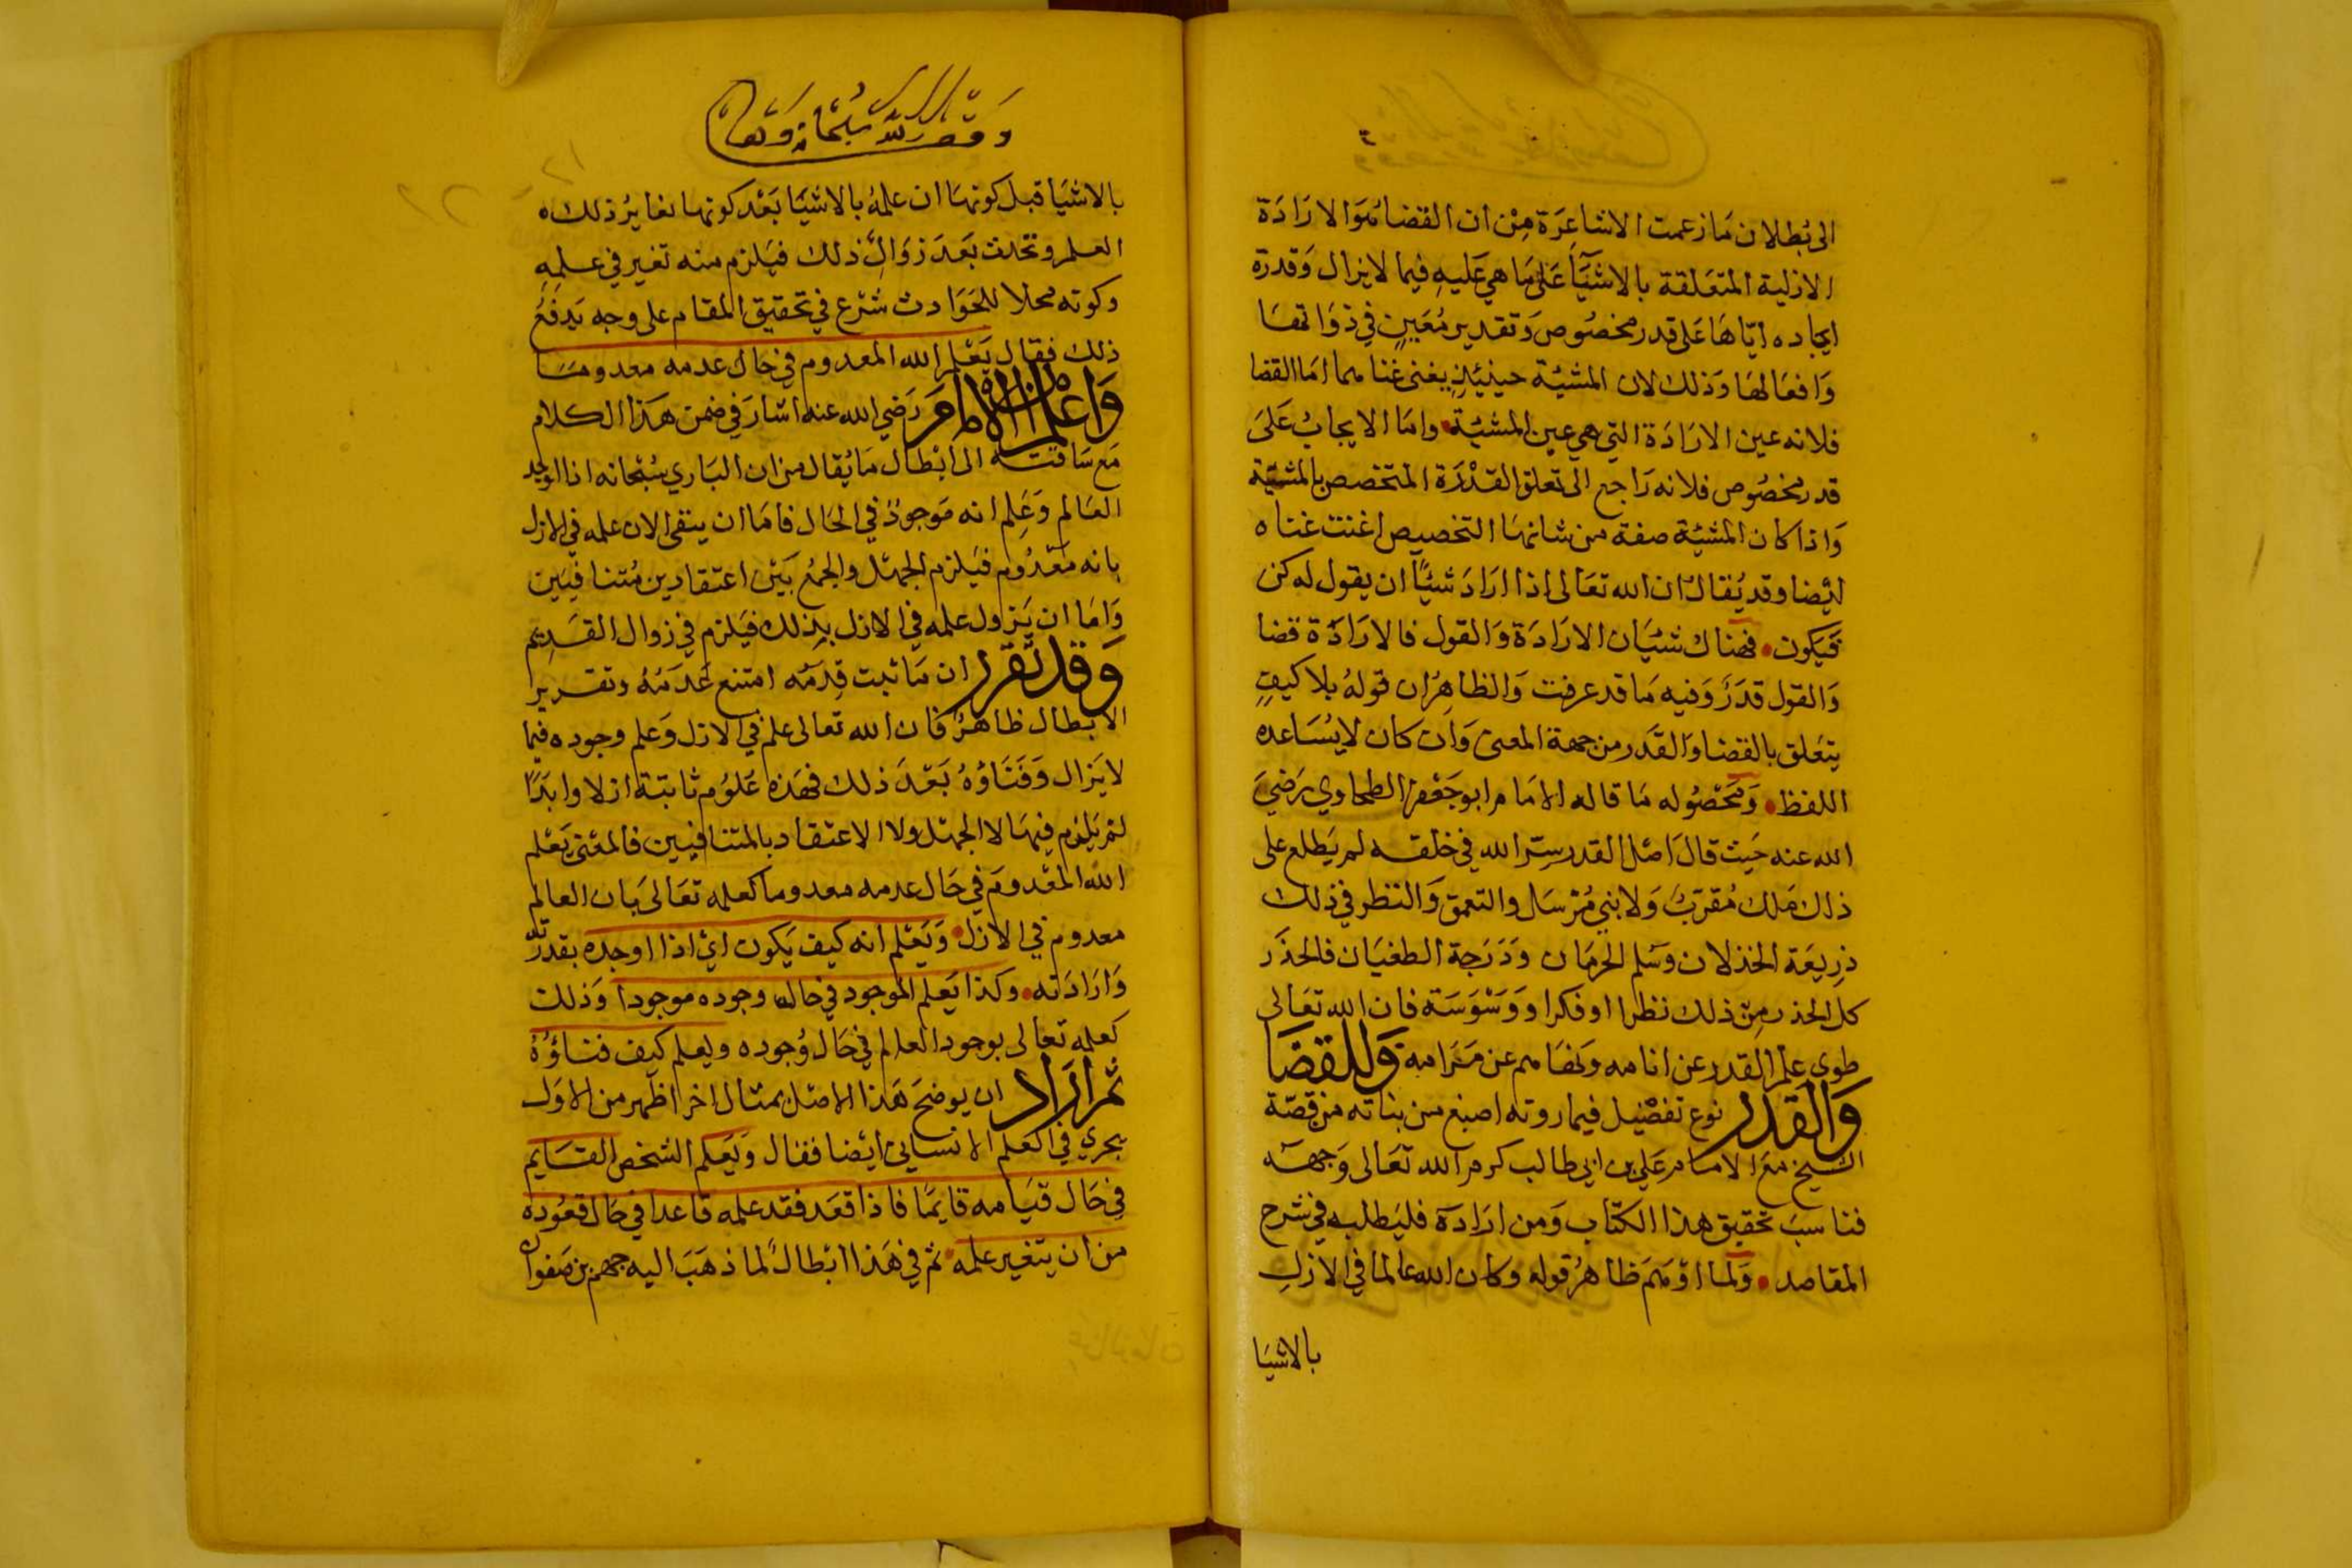 الى بطلان ما زعمت الاشاعرة من ان القضا هو الارادة
الازلية المتعلقة بالاشيآ على ما هي عليه فيما لايزال وقدرة
ايجاده اياها على قدر مخصوص وتقدير معين في ذواتها
وافعالها وذلك لان المشيئة حينيئذ يغني غنا هما اما القضا
فلانه عين الارادة التي هي عين المشيئة واما الايجاب على
قدر مخصوص فلانه راجع الى تعلق القدرة المتخصص بالمشيئة
واذا كان المشيئة صفة من شانها التخصيص اغنت غناه
ايضا وقد يقال ان الله تعالى اذا اراد شيئا ان يقول له كن
فيكون فهناك شيئان الارادة والقول فالارادة قضا
والقول قدر وفيه ما قد عرفت والظاهر ان قوله بلا كيف
يتعلق بالقضا والقدر من جهة المعنى وان كان لا يساعده
اللفظ ومحصوله ما قاله الامام ابو جعفر الطحاوي رضي
الله عنه حيث قال اصل القدر سر الله في خلقه لم يطلع على
ذلك ملك مقرب ولا نبي مرسل والتعمق والنظر في ذلك
ذريعة الخذلان وسلم الحرمان ودرجة الطغيان فالحذر
كل الحذر من ذلك نظرا او فكرا ووسوسة فان الله تعالى
طوى علم القدر عن انامه ونهاهم عن مرامه وللقضا
والقدر نوع تفصيل فيما روته اصبغ من بناته من قصة
الشيخ مع الامام علي بن ابي طالب كرم الله تعالى وجهه
فناسب تحقيق هذا الكتاب ومن اراده فليطلبه في شرح
المقاصد ولما اوهم ظاهر قوله وكان الله عالما في الازل
بالاشيا
وقف لله سبحانه وتعالى
بالاشيا قبل كونها ان علمه بالاشيا بعد كونها يغاير ذلك
العلم وتحدث بعد زوال ذلك فيلزم منه تغير في علمه
وكونه محلا للحوادث شرع في تحقيق المقام على وجه يدفع
ذلك فقال يعلم الله المعدوم في حال عدمه معدوما
واعلم ان الامام رضي الله عنه اشار في ضمن هذا الكلام
مع سافته الى ابطال ما يقال من ان الباري سبحانه اذا اوجد
العالم وعلم انه موجود في الحال فاما ان يبقى الان علمه في الازل
بانه معدوم فيلزم الجهل والجمع بين اعتقادين متنافيين
واما ان يزول علمه في الازل بذلك فيلزم في زوال القديم
وقد تقرر ان ما ثبت قدمه امتنع عدمه وتقرير
الابطال ظاهر فان الله تعالى علم في الازل وعلم وجوده فيما
لا يزال وفناؤه بعد ذلك فهذه علوم ثابتة ازلا وابدا
لم يلزم فيها لا الجهل ولا الاعتقاد بالمتنافيين فالمعنى يعلم
الله المعدوم في حال عدمه معدوما كعلمه تعالى بان العالم
معدوم في الازل ويعلم انه كيف يكون اي اذا اوجده بقدرته
وارادته وكذا يعلم الموجود في حال وجوده موجودا وذلك
كعلمه تعالى بوجود العالم في حال وجوده ويعلم كيف فناؤه
ثم اراد ان يوضح هذا الاصل بمثال اخر اظهر من الاول
يجري في العلم الانساني ايضا فقال ويعلم الشخص القايم
في حال قيامه قايما فاذا قعد فقد علمه قاعدا في حال قعوده
من ان يتغير علمه ثم في هذا ابطال لما ذهب اليه جهم بن صفوان